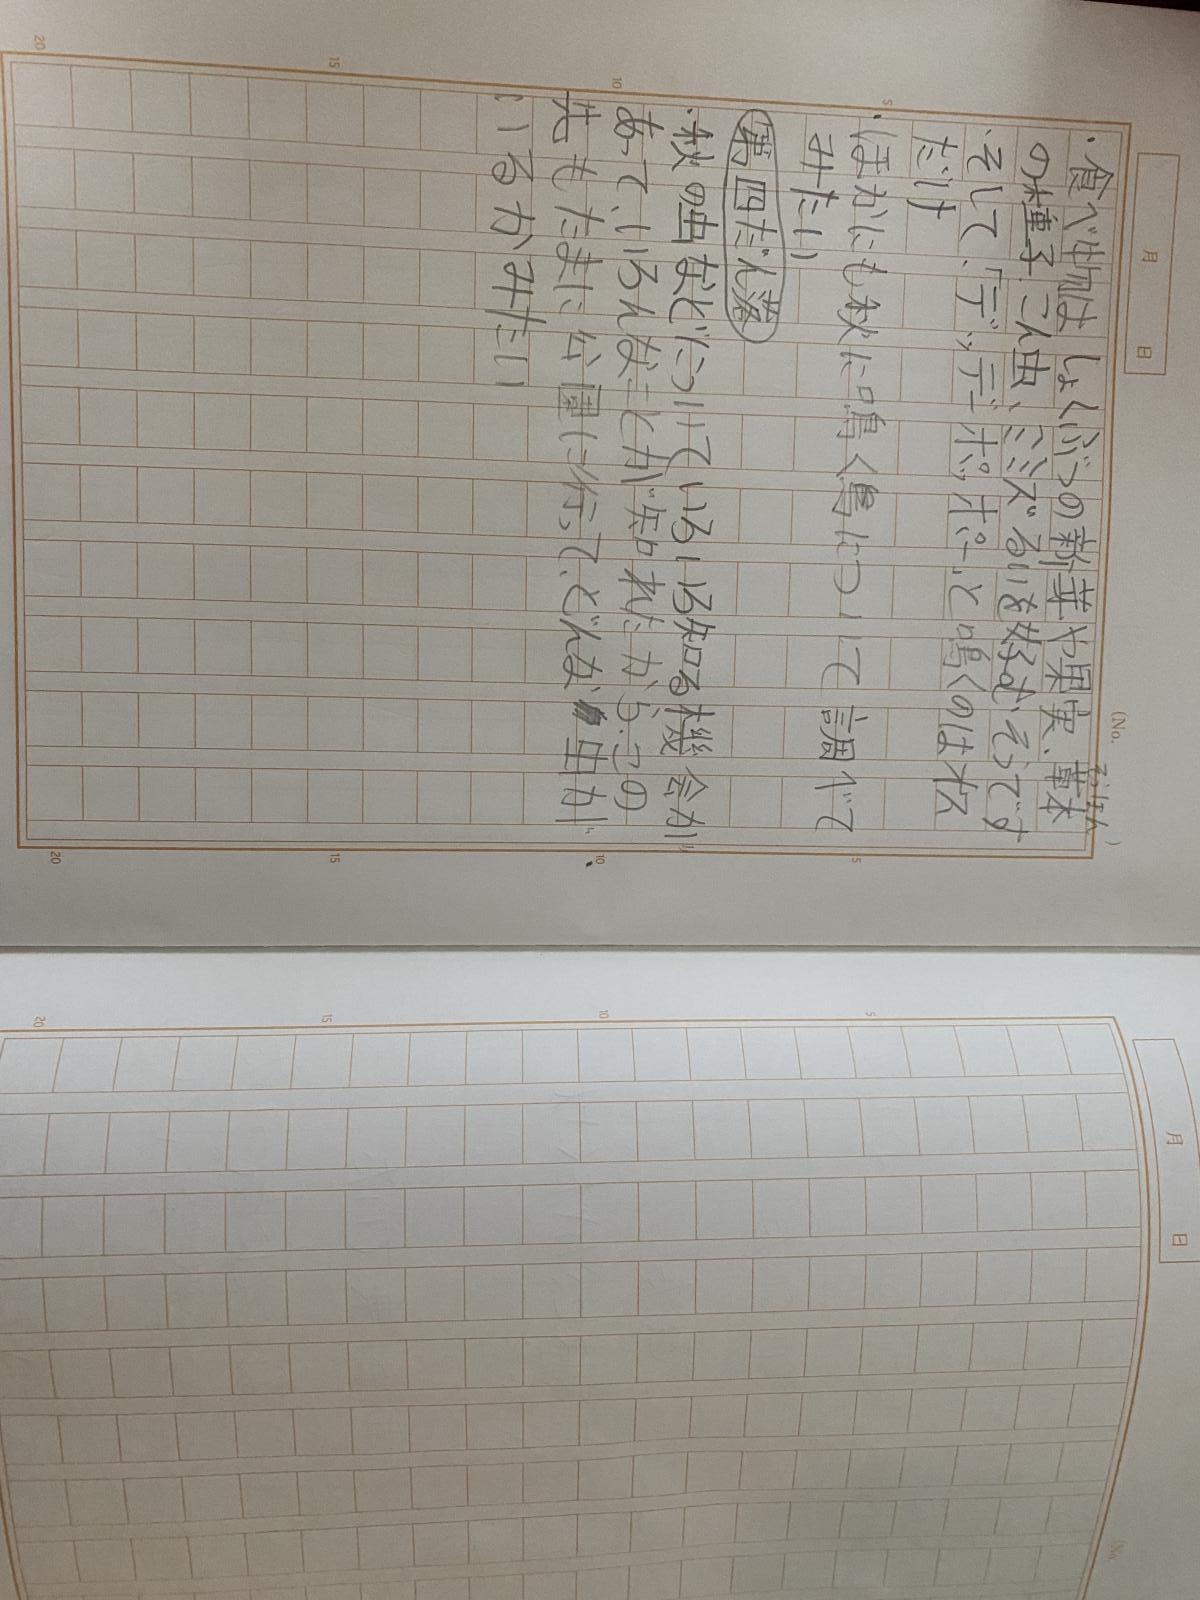 月 日 (No. )
そうほん
・食べ物はしょくぶつの新芽や果実、草本
の種子、こん虫、ミミズるいを好むそうです
・そして、「デッデポッポー」と鳴くのはオス
だけ
・ほかにも秋に鳴く鳥について調べて
みたい
第四だん落
・秋の虫などについていろいろ知る機会が
あって、いろんなことが知れたから、この
先もたまに公園に行って、どんな虫が
いるかみたい
5 10 15 20
5 10 15 20
月 日 (No.
5 10 15 20